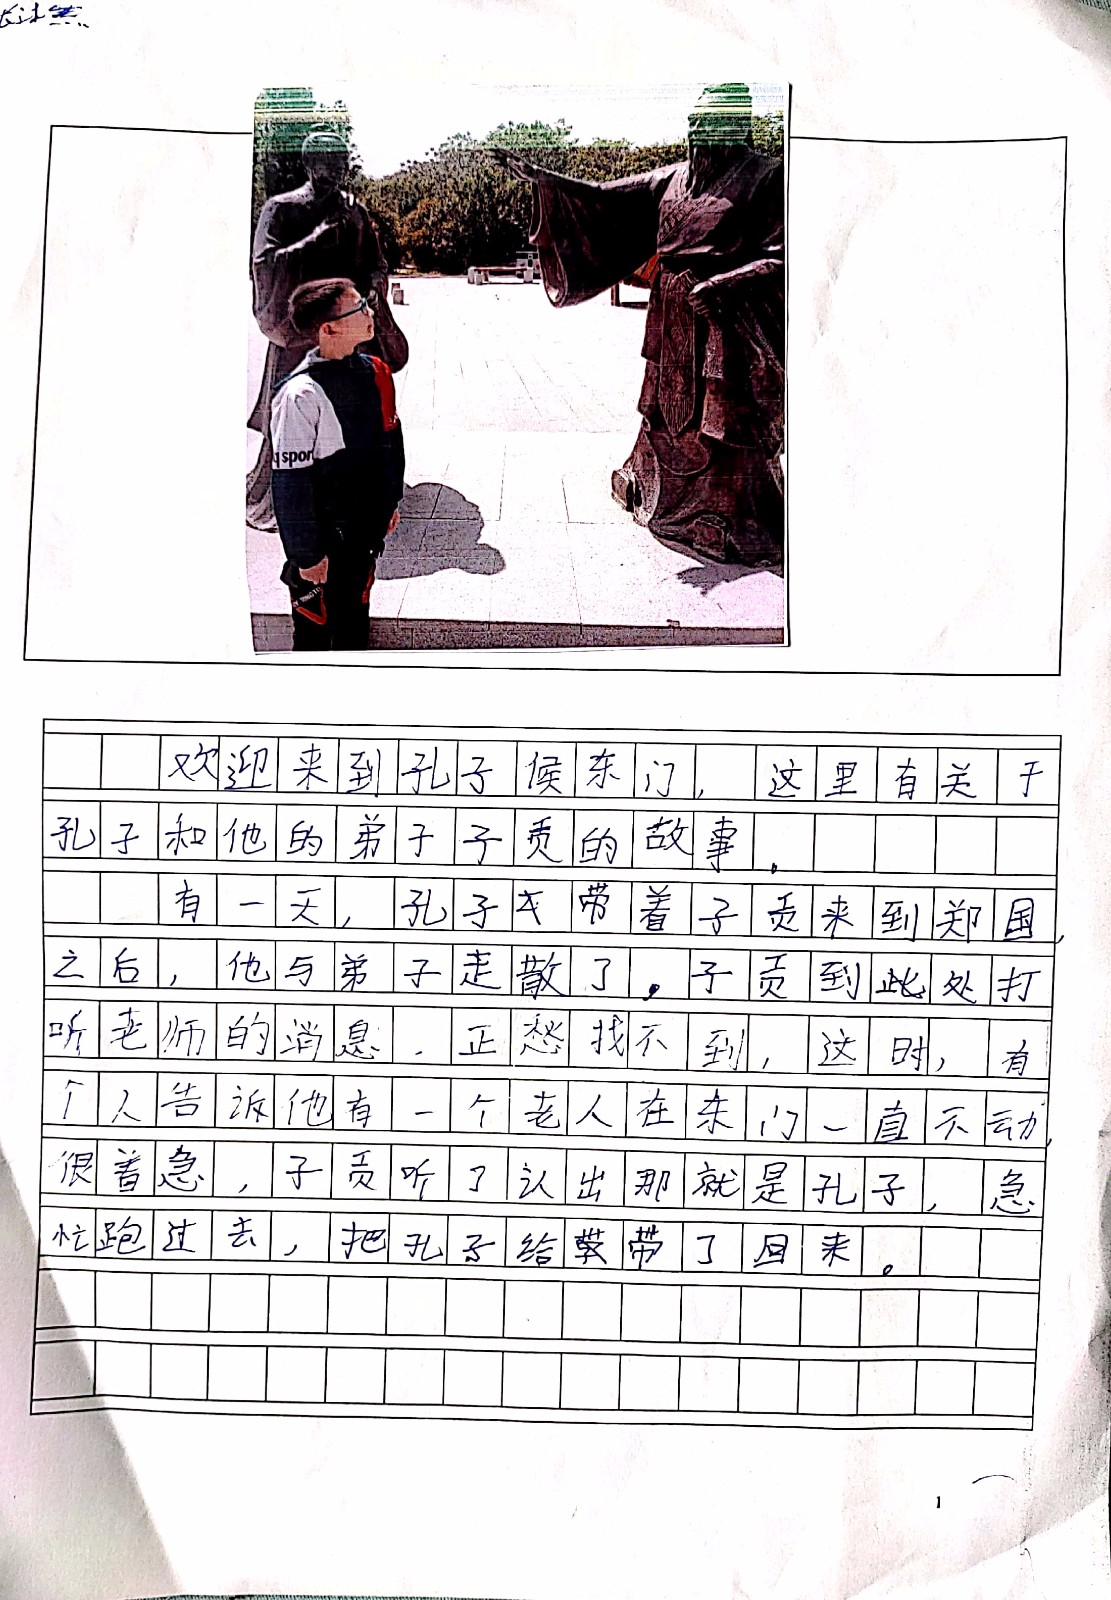 q spor
欢迎来到孔子侯东门，这里有关于
孔子和他的弟子子贡的故事。
有一天，孔子带着子贡来到郑国，
之后，他与弟子走散了。子贡到此处打
听老师的消息．正愁找不到，这时，有
个人告诉他有一个老人在东门一直不动，
很着急，子贡听了认出那就是孔子，急
忙跑过去，把孔子给带了回来。
1